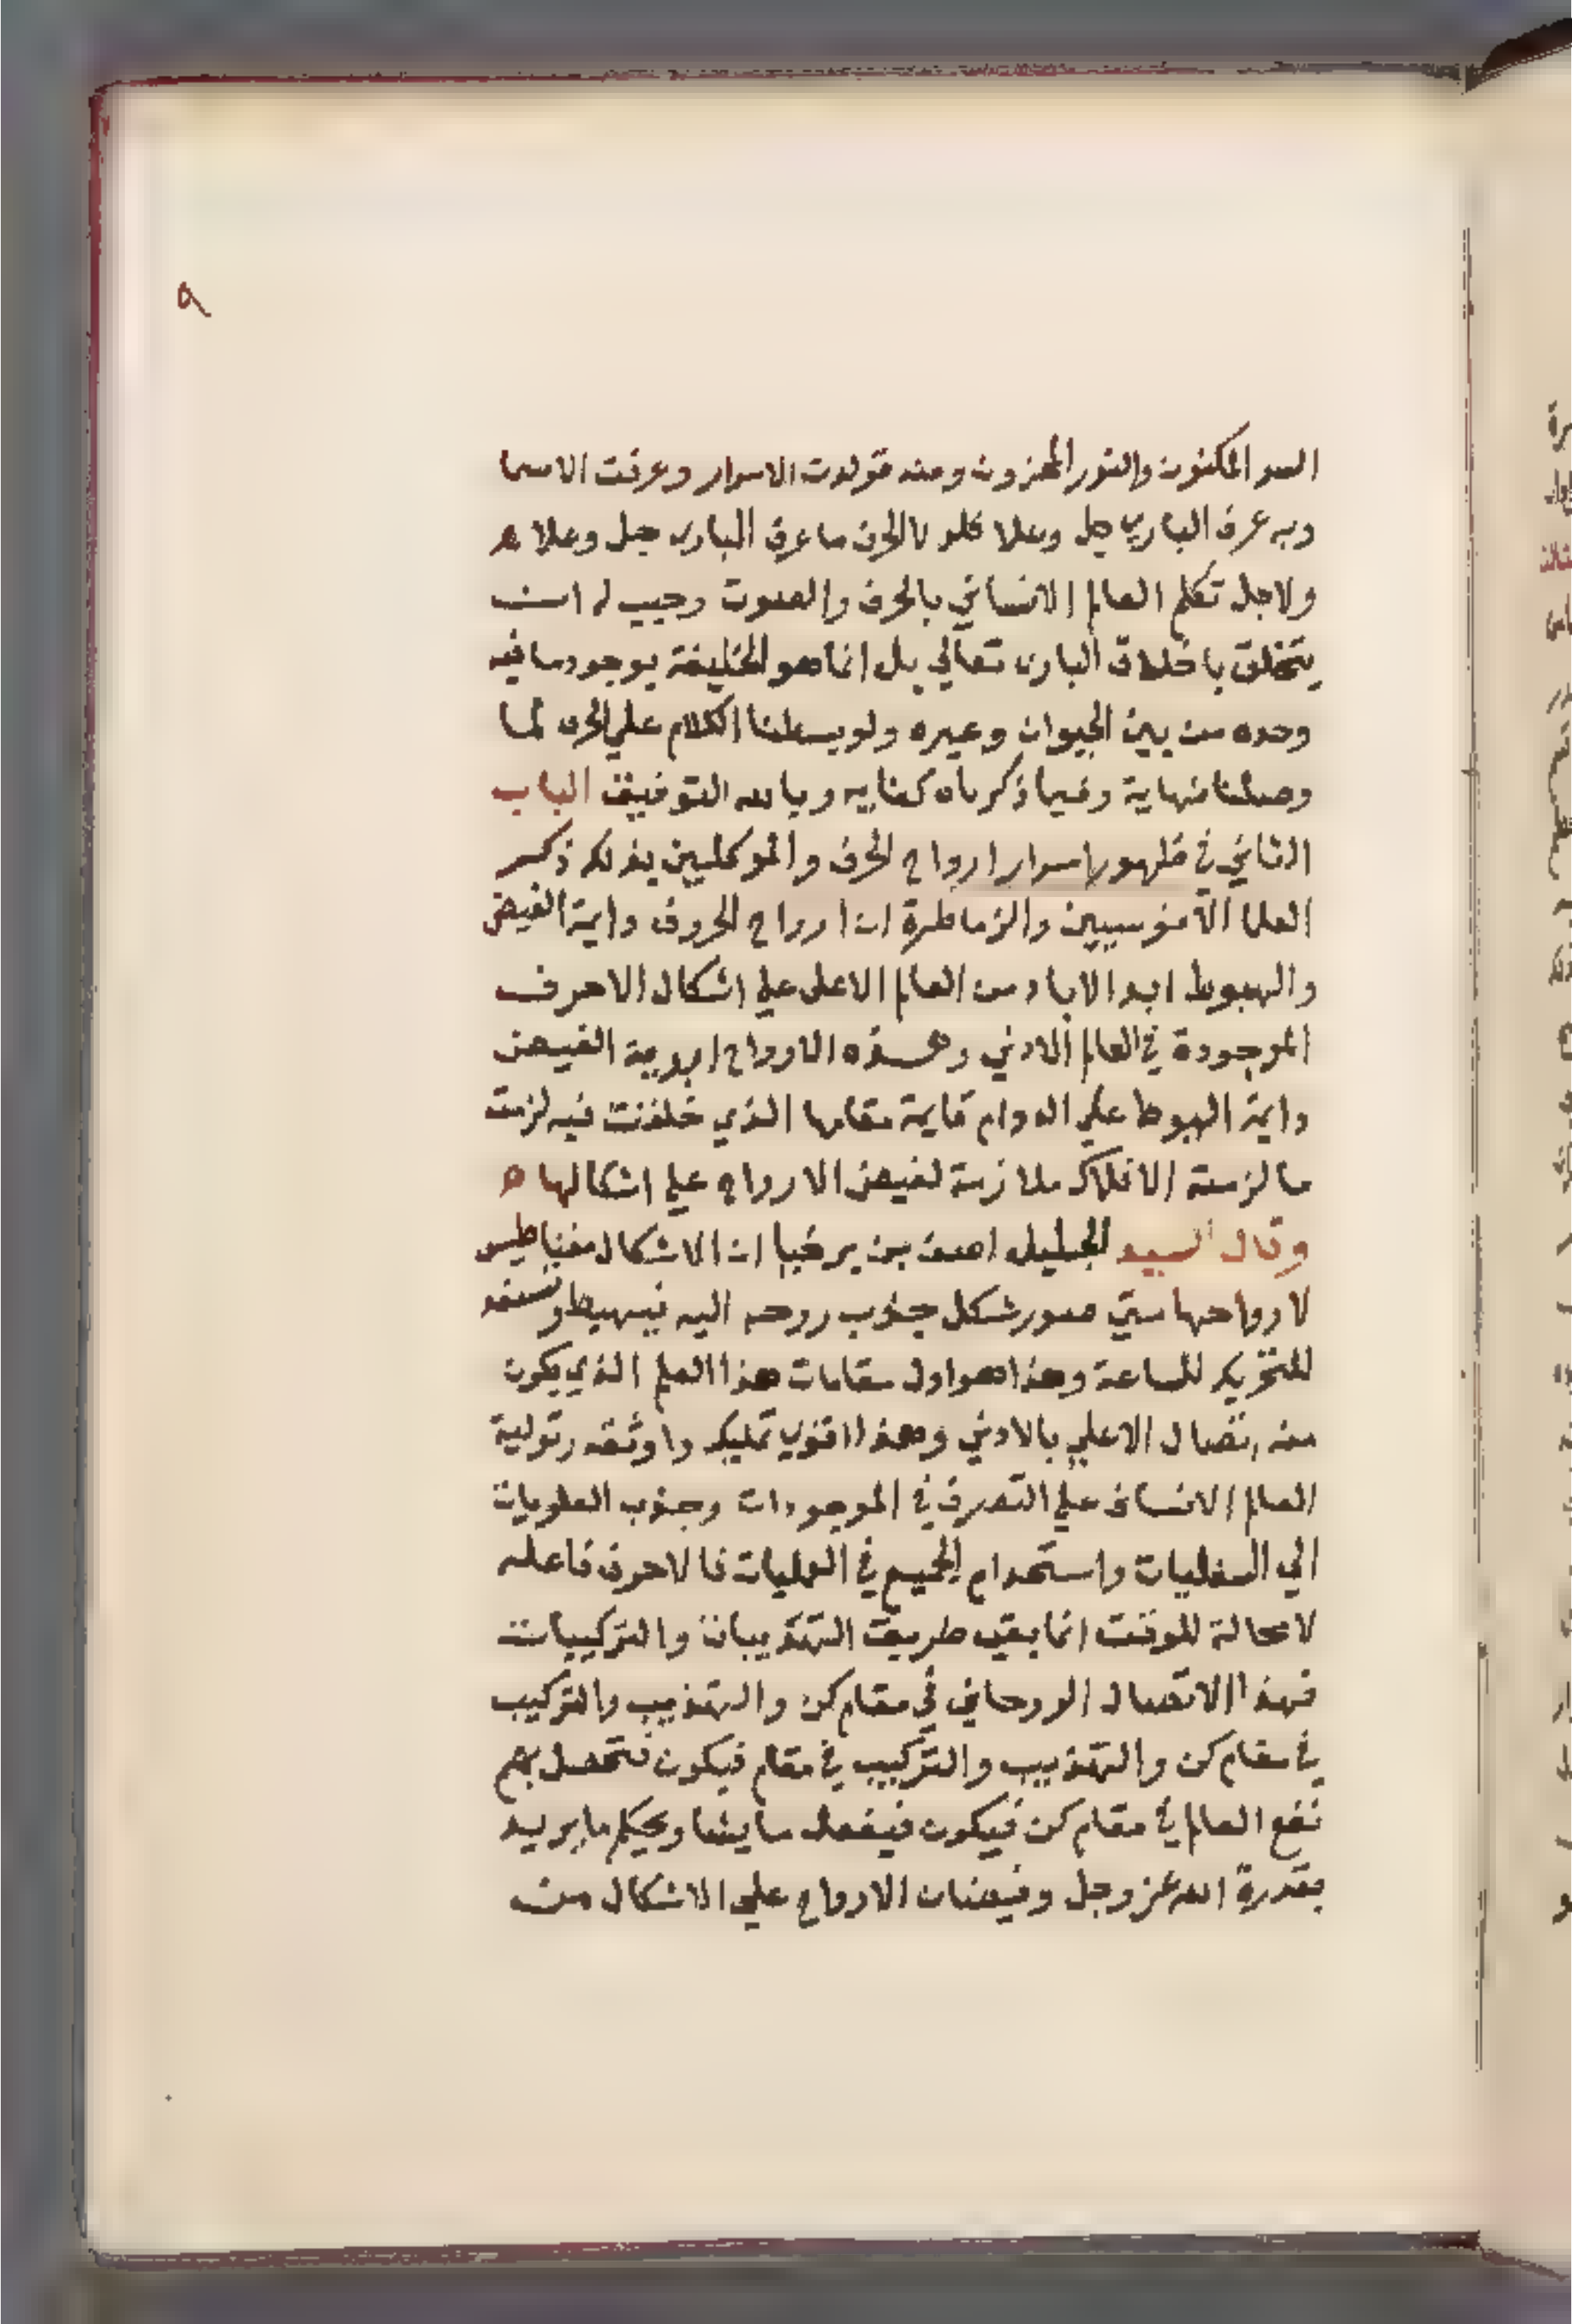 ٩
السر المكنون والنور المخزون ومنه تولدت الاسرار وعرفت الاسما
وبه عرف الباري جل وعلا فلولا الحرف ما عرف الباري جل وعلا ه
ولاجل تكلم العالم الانساني بالحرف والصوت وجب له ان
يتخلق باخلاق الباري تعالي بل انما هو الخليفة بوجود ما فيه
وحده من بين الحيوان وغيره ولو بسطنا الكلام علي الحرف لما
وصلنا نهاية وفيما ذكرناه كفايه وبالله التوفيق الباب
الثاني في ظهور اسرار ارواح الحرف والموكلين بذلك ذكر
العلما والزماطرة ان ارواح الحروف دايمة الفيض
والهبوط ابد الاباد من العالم الاعلي علي اشكال الاحرف
الموجودة في العالم الادني وهذه الارواح ابدية الفيض
دايمة الهبوط علي الدوام قايمة مقامها الذي خلقت فيه لزمت
ما لزمته الافلاك ملازمة لفيض الارواح علي اشكالها ه
وقال السيد الجليل اصف بن برخيا ان الاشكال مغناطيس
لارواحها متي صور شكل جذب روحه اليه فيهبط
للتحريك للساعة وهذا هو اول مقامات هذا العلم الذي يكون
منه اتصال الاعلي بالادني وهذا اقوي تمليك واوثقه وتولية
العالم الانساني علي التصرف في الموجودات وجذب العلويات
الي السفليات واستخدام الجميع في العمليات فالاحرف فاعله
لا محالة للوقت انما بقي طريق التهذيبات والتركيبات
فهذا الاتصال الروحاني في مقام كن والتهذيب والتركيب
في مقام كن والتهذيب والتركيب في مقام فيكون فتحصل بهم
نفع العالم في مقام كن فيكون فيفعل ما يشا ويحكم ما يريد
بقدرة الله عز وجل وفيضان الارواح علي الاشكال من